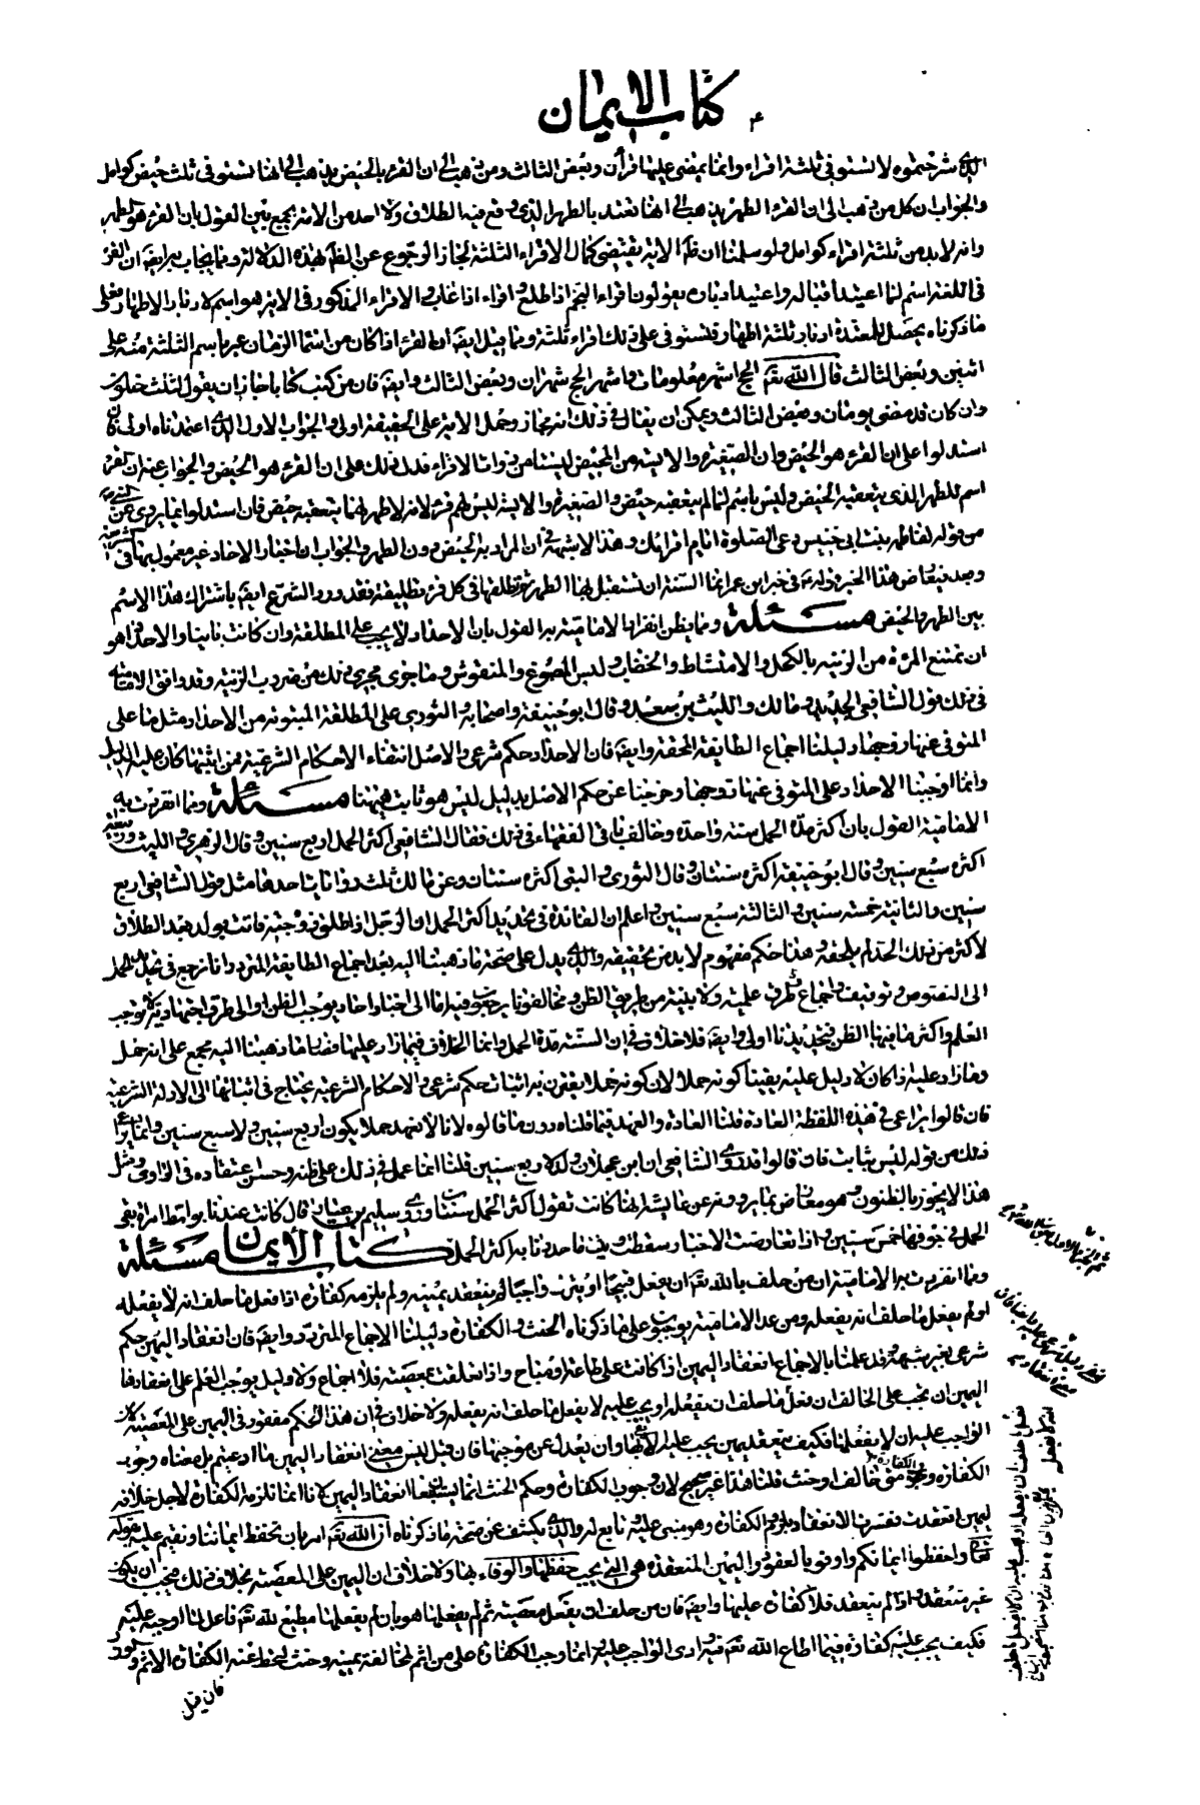 كتاب الايمان
الذي شرحتموه لا تستوفي ثلثة اقراء وانما يمضى عليها قرأن وبعض الثالث ومن ذهب الى ان القرء الحيض يذهب الى انها تستوفي ثلث حيض كوامل
والجواب ان كل من ذهب الى ان القرء الطهر يذهب الى انها تعتد بالطهر الذي وقع فيه الطلاق ولا احد من الامة يجمع بين القول بان القرء هو الطهر
وانه لا بد من ثلثة اقراء كوامل ولو سلمنا ان ظاهر الاية يقتضى كمال الاقراء الثلثة لجاز الرجوع عن الظاهر لهذه الدلالة ومما يجاب به ايضا ان القرء
في اللغة اسم لما اعتيد اقباله واعتيد ادباره يقولون اقراء النجم اذا طلع واقراء اذا غاب والاقراء المذكور في الاية هو اسم لادبار الاطهار فعلى
ما ذكرناه يحصل للمعتدة ادبار ثلثة اطهار فتستوفي على ذلك اقراء ثلثة ومما قيل ايضا ان القرء اذا كان من اسماء الزمان عبر باسم الثلثة منه على
اثنين وبعض الثالث قال الله تعالى الحج اشهر معلومات فاشهر الحج شهران وبعض الثالث وايضا فان من كتب كتابا جاز ان يقول لثلث خلون
وان كان قد مضى يومان وبعض الثالث ويمكن ان يقال في ذلك انه مجاز وحمل الاية على الحقيقة اولى والجواب الاول الذي اعتمدناه اولى فان
استدلوا على ان القرء هو الحيض وان الصغيرة والآيسة من المحيض ليستا من ذوات الاقراء فدل ذلك على ان القرء هو الحيض والجواب عنه ان القرء
اسم للطهر الذي يتعقبه الحيض وليس باسم لما لم يتعقبه حيض والصغيرة والآيسة ليس لهم قرء لانه لا طهر لهما يتعقبه حيض فان استدلوا بما يروى عن النبي
من قوله لفاطمة بنت ابي حبيش دعى الصلوة ايام اقرائك وهذا لا شبهة في ان المراد به الحيض دون الطهر والجواب ان اخبار الاحاد غير معمول بها في
وبعد فيعارض هذا الخبر قوله في خبر ابن عمر انما السنة ان تستقبل بها الطهر ثم تطلقها في كل قرء تطليقة فقد ورد الشرع ايضا باشتراك هذا الاسم
بين الطهر والحيض مسئلة ومما يظن انفراد الامامية به القول بان الاحداد لا يجب على المطلقة وان كانت باينا والاحداد هو
ان تمتنع المرءة من الزينة بالكحل والامتشاط والخضاب ولبس المصبوغ والمنقوش وما جرى مجرى ذلك من ضروب الزينة وقد وافق الامامية
في ذلك قول الشافعي الجديد ومالك والليث بن سعد وقال ابو حنيفة واصحابه والثوري على المطلقة المبتوتة من الاحداد مثل ما على
المتوفى عنها زوجها دليلنا اجماع الطايفة المحقة وايضا فان الاحداد حكم شرعي والاصل انتفاء الاحكام الشرعية فمن اثبتها كان عليه الدليل
وانما اوجبنا الاحداد على المتوفى عنها زوجها وخرجنا عن حكم الاصل بدليل ليس هو ثابت هيهنا مسئلة ومما انفردت به
الامامية القول بان اكثر مدة الحمل سنة واحدة وخالف باقي الفقهاء في ذلك فقال الشافعي اكثر الحمل اربع سنين وقال الزهري والليث وربيعة
اكثره سبع سنين وقال ابو حنيفة اكثره سنتان وقال الثوري والبتى اكثره سنتان وعن مالك ثلث روايات احدها مثل قول الشافعي اربع
سنين والثانية خمسة سنين والثالثة سبع سنين واعلم ان الفائدة في تحديد اكثر الحمل ان الرجل اذا طلق زوجته فاتت بولد بعد الطلاق
لاكثر من ذلك الحد لم يلحقه وهذا حكم مفهوم لا بد من تحقيقه والذي يدل على صحة ما ذهبنا اليه بعد اجماع الطايفة المتردد انا نرجع في تحديد الحمل
الى النصوص وتوقيف واجماع وطرق علمية ولا نثبته من طريق الظن ومخالفونا يرجعون فيه اما الى اخبار احاد يوجب الظن او الى طرق اجتهادية لا توجب
العلم واكثر ما فيها الظن فتحديدنا اولى وايضا فلا خلاف في ان السنة مدة الحمل وانما الخلاف فيما زاد عليها فصار ما ذهبنا اليه مجمع على انه حمل
وما زاد عليه اذا كان لا دليل عليه يقينا كونه حملا لان كونه حملا يقترن به اثبات حكم شرعي والاحكام الشرعية يحتاج في اثباتها الى الادلة الشرعية
فان قالوا يراعى في هذه اللفظة العادة قلنا العادة والعهد فيما قلناه دون ما قالوه لانا لا نعهد حملا يكون اربع سنين ولا سبع سنين وانما يدعى
ذلك من قوله ليس بثابت فان قالوا قد روى الشافعي ان ابن عجلان ولد لاربع سنين قلنا انما عمل في ذلك على ظنه وحسن اعتقاده في الراوي ومثل
هذا لا يجوز بالظنون وهو معارض بما يروونه عن عايشة انها كانت تقول اكثر الحمل سنتان وروى سليم بن عباد قال كانت عندنا بواسط امراة بقى
الحمل في جوفها خمس سنين واذا تعارضت الاخبار سقطت وثبت ما حددنا به اكثر الحمل كتاب الأيمان مسئلة
ومما انفردت به الامامية ان من حلف بالله تعالى ان يفعل قبيحا او يترك واجبا لم ينعقد يمينه ولم يلزمه كفارة اذا فعل ما حلف انه لا يفعله
او لم يفعل ما حلف انه يفعله ومن عدا الامامية يوجبون على ما ذكرناه الحنث والكفارة دليلنا الاجماع المتردد وايضا فان انعقاد اليمين حكم
شرعي بغير شبهة وقد علمنا بالاجماع انعقاد اليمين اذا كانت على طاعة او مباح واذا تعلقت بمعصية فلا اجماع ولا دليل يوجب العلم على انعقادها
اليمين ان يجب على الحالف ان يفعل ما حلف ان يفعله او يجب عليه لا يفعل ما حلف انه يفعله ولا خلاف في ان هذا الحكم مفقود في اليمين على المعصية لان
الواجب عليه ان لا يفعلها فكيف ينعقد يمين يجب عليه الا يفى بها وان يعدل عن موجبها فان قيل ليس معنى انعقاد اليمين ما ادعيتم بل معناه وجوب
الكفارة متى خالف او حنث قلنا هذا غير صحيح لان وجوب الكفارة وحكم الحنث انما يتبعا انعقاد اليمين لانا انما نلزمه الكفارة لاجل خلافه
ليمين انعقدت نفسر الانعقاد بلزوم الكفارة وهو مبنى عليه وتابع له والذي يكشف عن صحة ما ذكرناه ان الله تعالى امر بان تحفظ ايماننا ونقيم عليه بقوله
تعالى واحفظوا ايمانكم واوفوا بالعقود واليمين المنعقدة هي التي يجب حفظها والوفاء بها ولا خلاف ان اليمين على المعصية بخلاف ذلك فيجب ان يكون
غير منعقدة واذا لم تنعقد فلا كفارة عليها وايضا فان من حلف ان يفعل معصية ثم لم يفعلها هو بان لم يفعلها مطيع لله تعالى فاعل لما اوجبه عليه
فكيف يجب عليه كفارة فيما اطاع الله تعالى فيه وادى الواجب عليه انما وجب الكفارة على من اثم لمخالفة يمينه وحنث لتحط عنه الكفارة الاثم
فان قيل